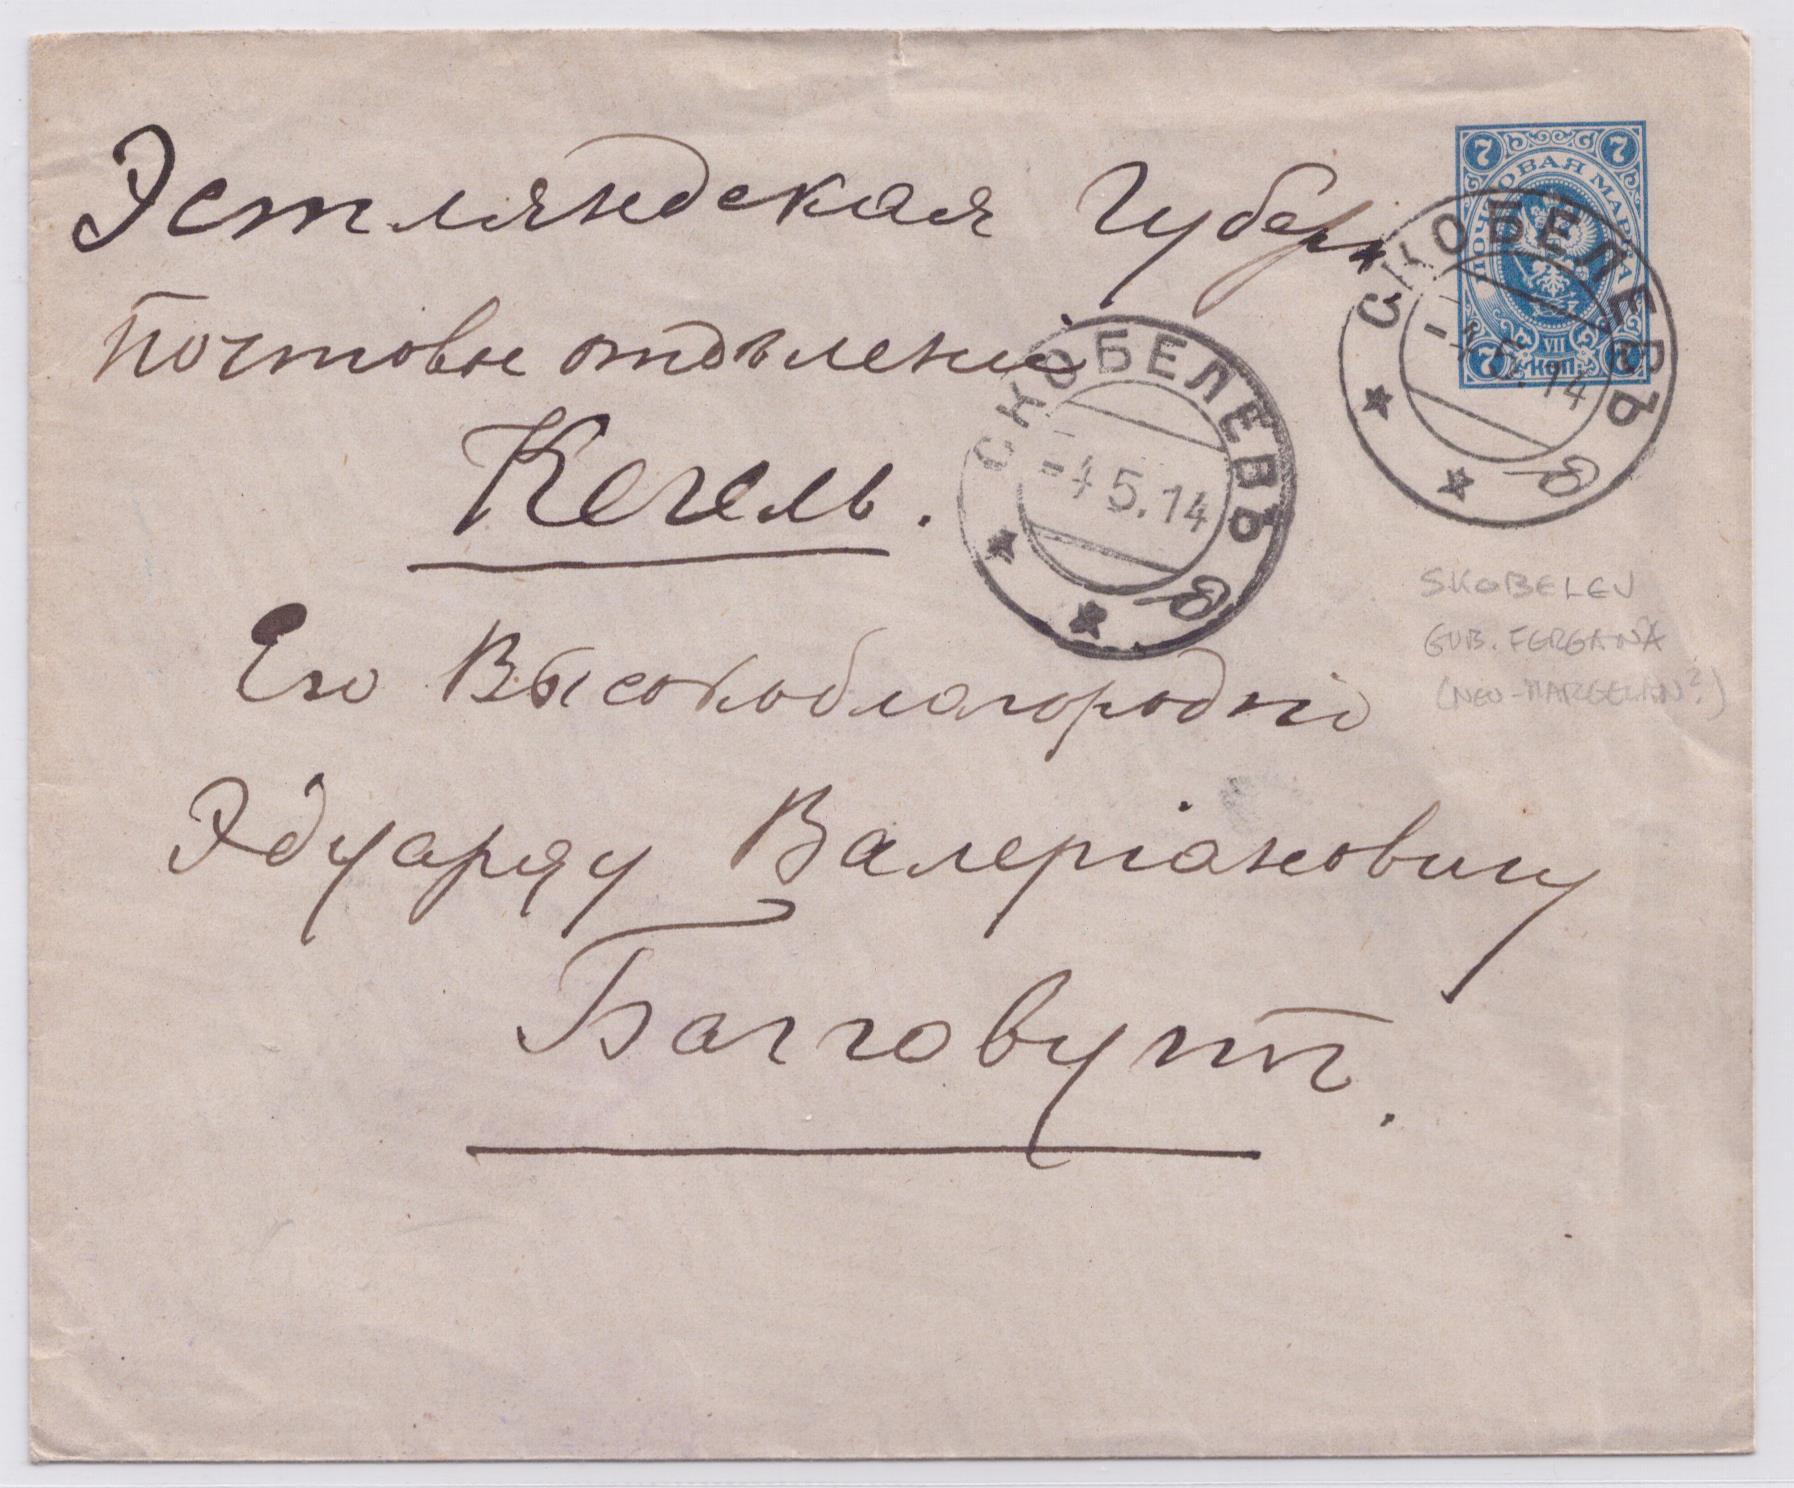 Эстляндская Губерн
почтовое отдѣленіе
Кегель.
Его Высокоблагородію
Эдуарду Валеріановичу
Баггоvутъ.
7 7
ПОЧТОВАЯ МАРКА
VII
7 КОП. 7
СКОБЕЛЕВЪ
-4 5.14
в
СКОБЕЛЕВЪ
-4 5.14
в
SKOBELEV
GUB. FERGANA
(NEU-MARGELAN?)